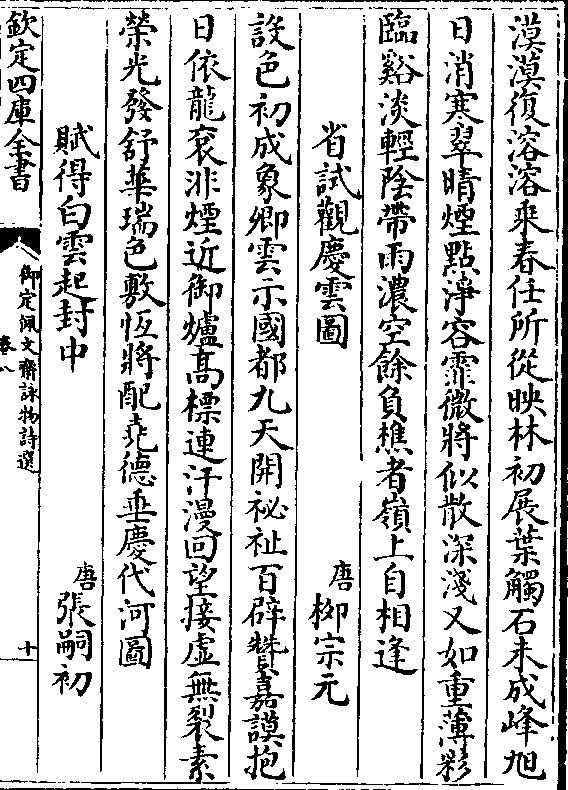 漠漠復溶溶乘春任所從映林初展葉觸石未成峰旭
日消寒翠晴煙點淨容霏微將似散深淺又如重薄彩
臨谿淡輕陰帶雨濃空餘負樵者嶺上自相逢
省試觀慶雲圖 唐 柳宗元
設色初成象卿雲示國都九天開祕祉百辟贊嘉謨抱
日依龍衮非煙近御爐髙標連汗漫回望接虛無裂素
榮光發舒華瑞色敷恆將配堯德垂慶代河圖
賦得白雲起封中 唐 張嗣初
欽定四庫全書
御定佩文齋詠物詩選
卷八
十